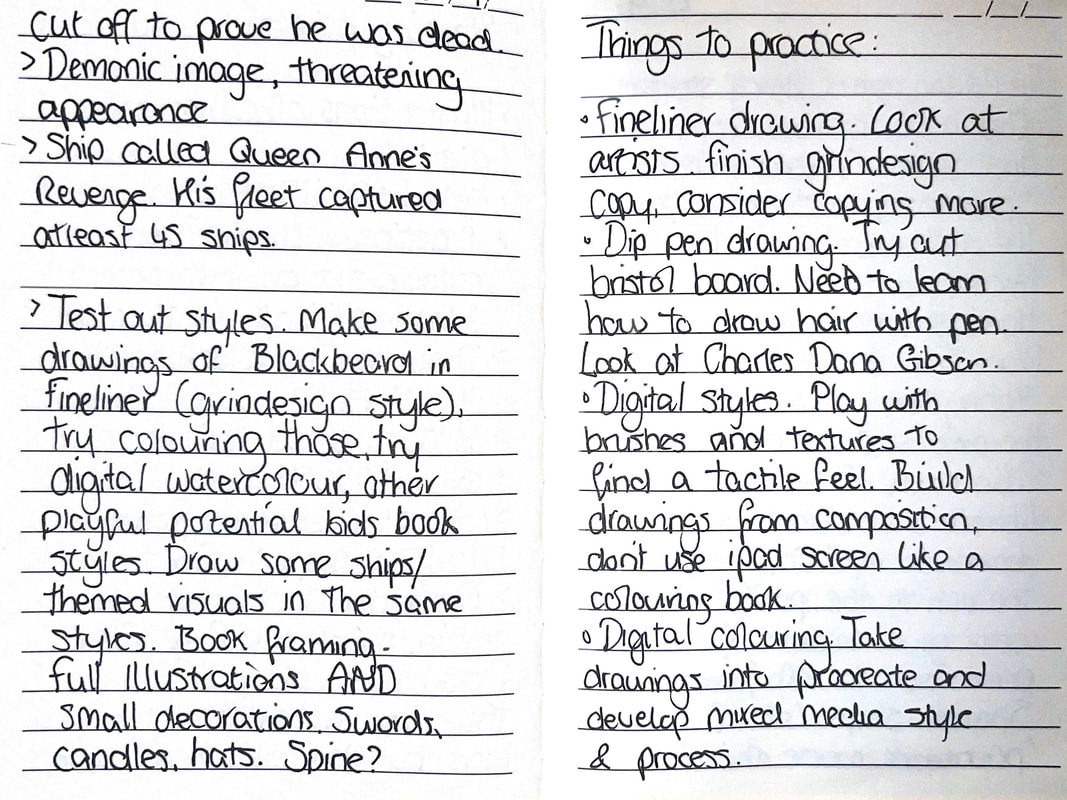 cut off to prove he was dead.
> Demonic image, threatening
appearance
> Ship called Queen Anne's
Revenge. His fleet captured
atleast 45 ships.
> Test out styles. Make some
drawings of Blackbeard in
fineliner (grindesign style),
try colouring those, try
digital watercolour, other
playful potential kids book
styles. Draw some ships/
themed visuals in the same
styles. Book framing.
full illustrations AND
small decorations. Swords,
candles, hats. Spine?
_/_/_
Things to practice:
• Fineliner drawing. Look at
artists. finish grindesign
copy, consider copying more.
• Dip pen drawing. Try out
bristol board. Need to learn
how to draw hair with pen.
Look at Charles Dana Gibson.
• Digital styles. Play with
brushes and textures to
find a tactile feel. Build
drawings from composition,
don't use ipad screen like a
colouring book.
• Digital colouring. Take
drawings into procreate and
develop mixed media style
& process.